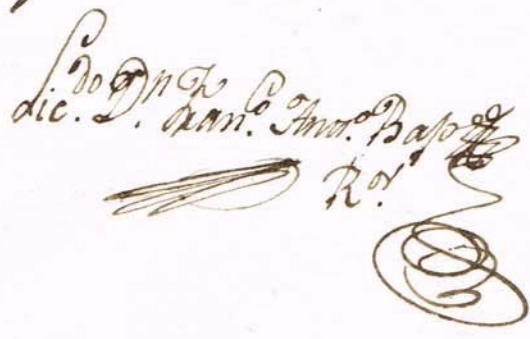 Licdo. Dn. Franco. Anto. Bap
Ror.